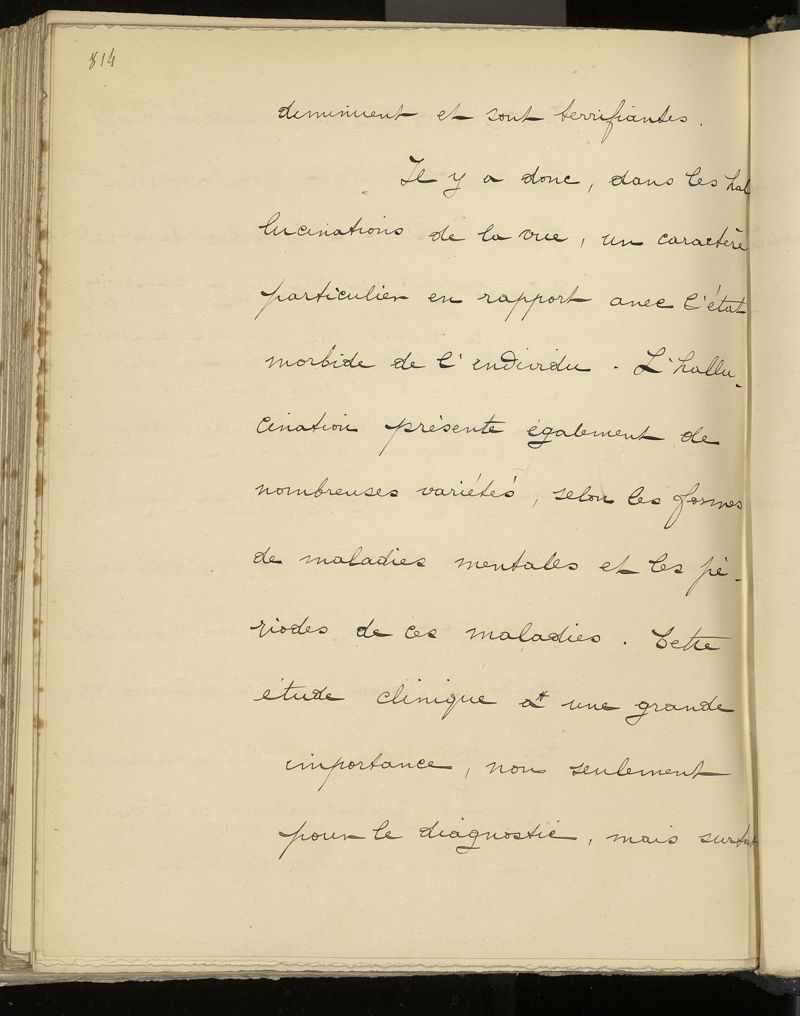 814
diminuent et sont terrifiantes.
Il y a donc, dans les hal
lucinations de la vue, un caractère
particulier en rapport avec l'état
morbide de l'individu. L'hallu-
cination présente également de
nombreuses variétés, selon les formes
de maladies mentales et les pé-
riodes de ces maladies. Cette
étude clinique a une grande
importance, non seulement
pour le diagnostic, mais surtout